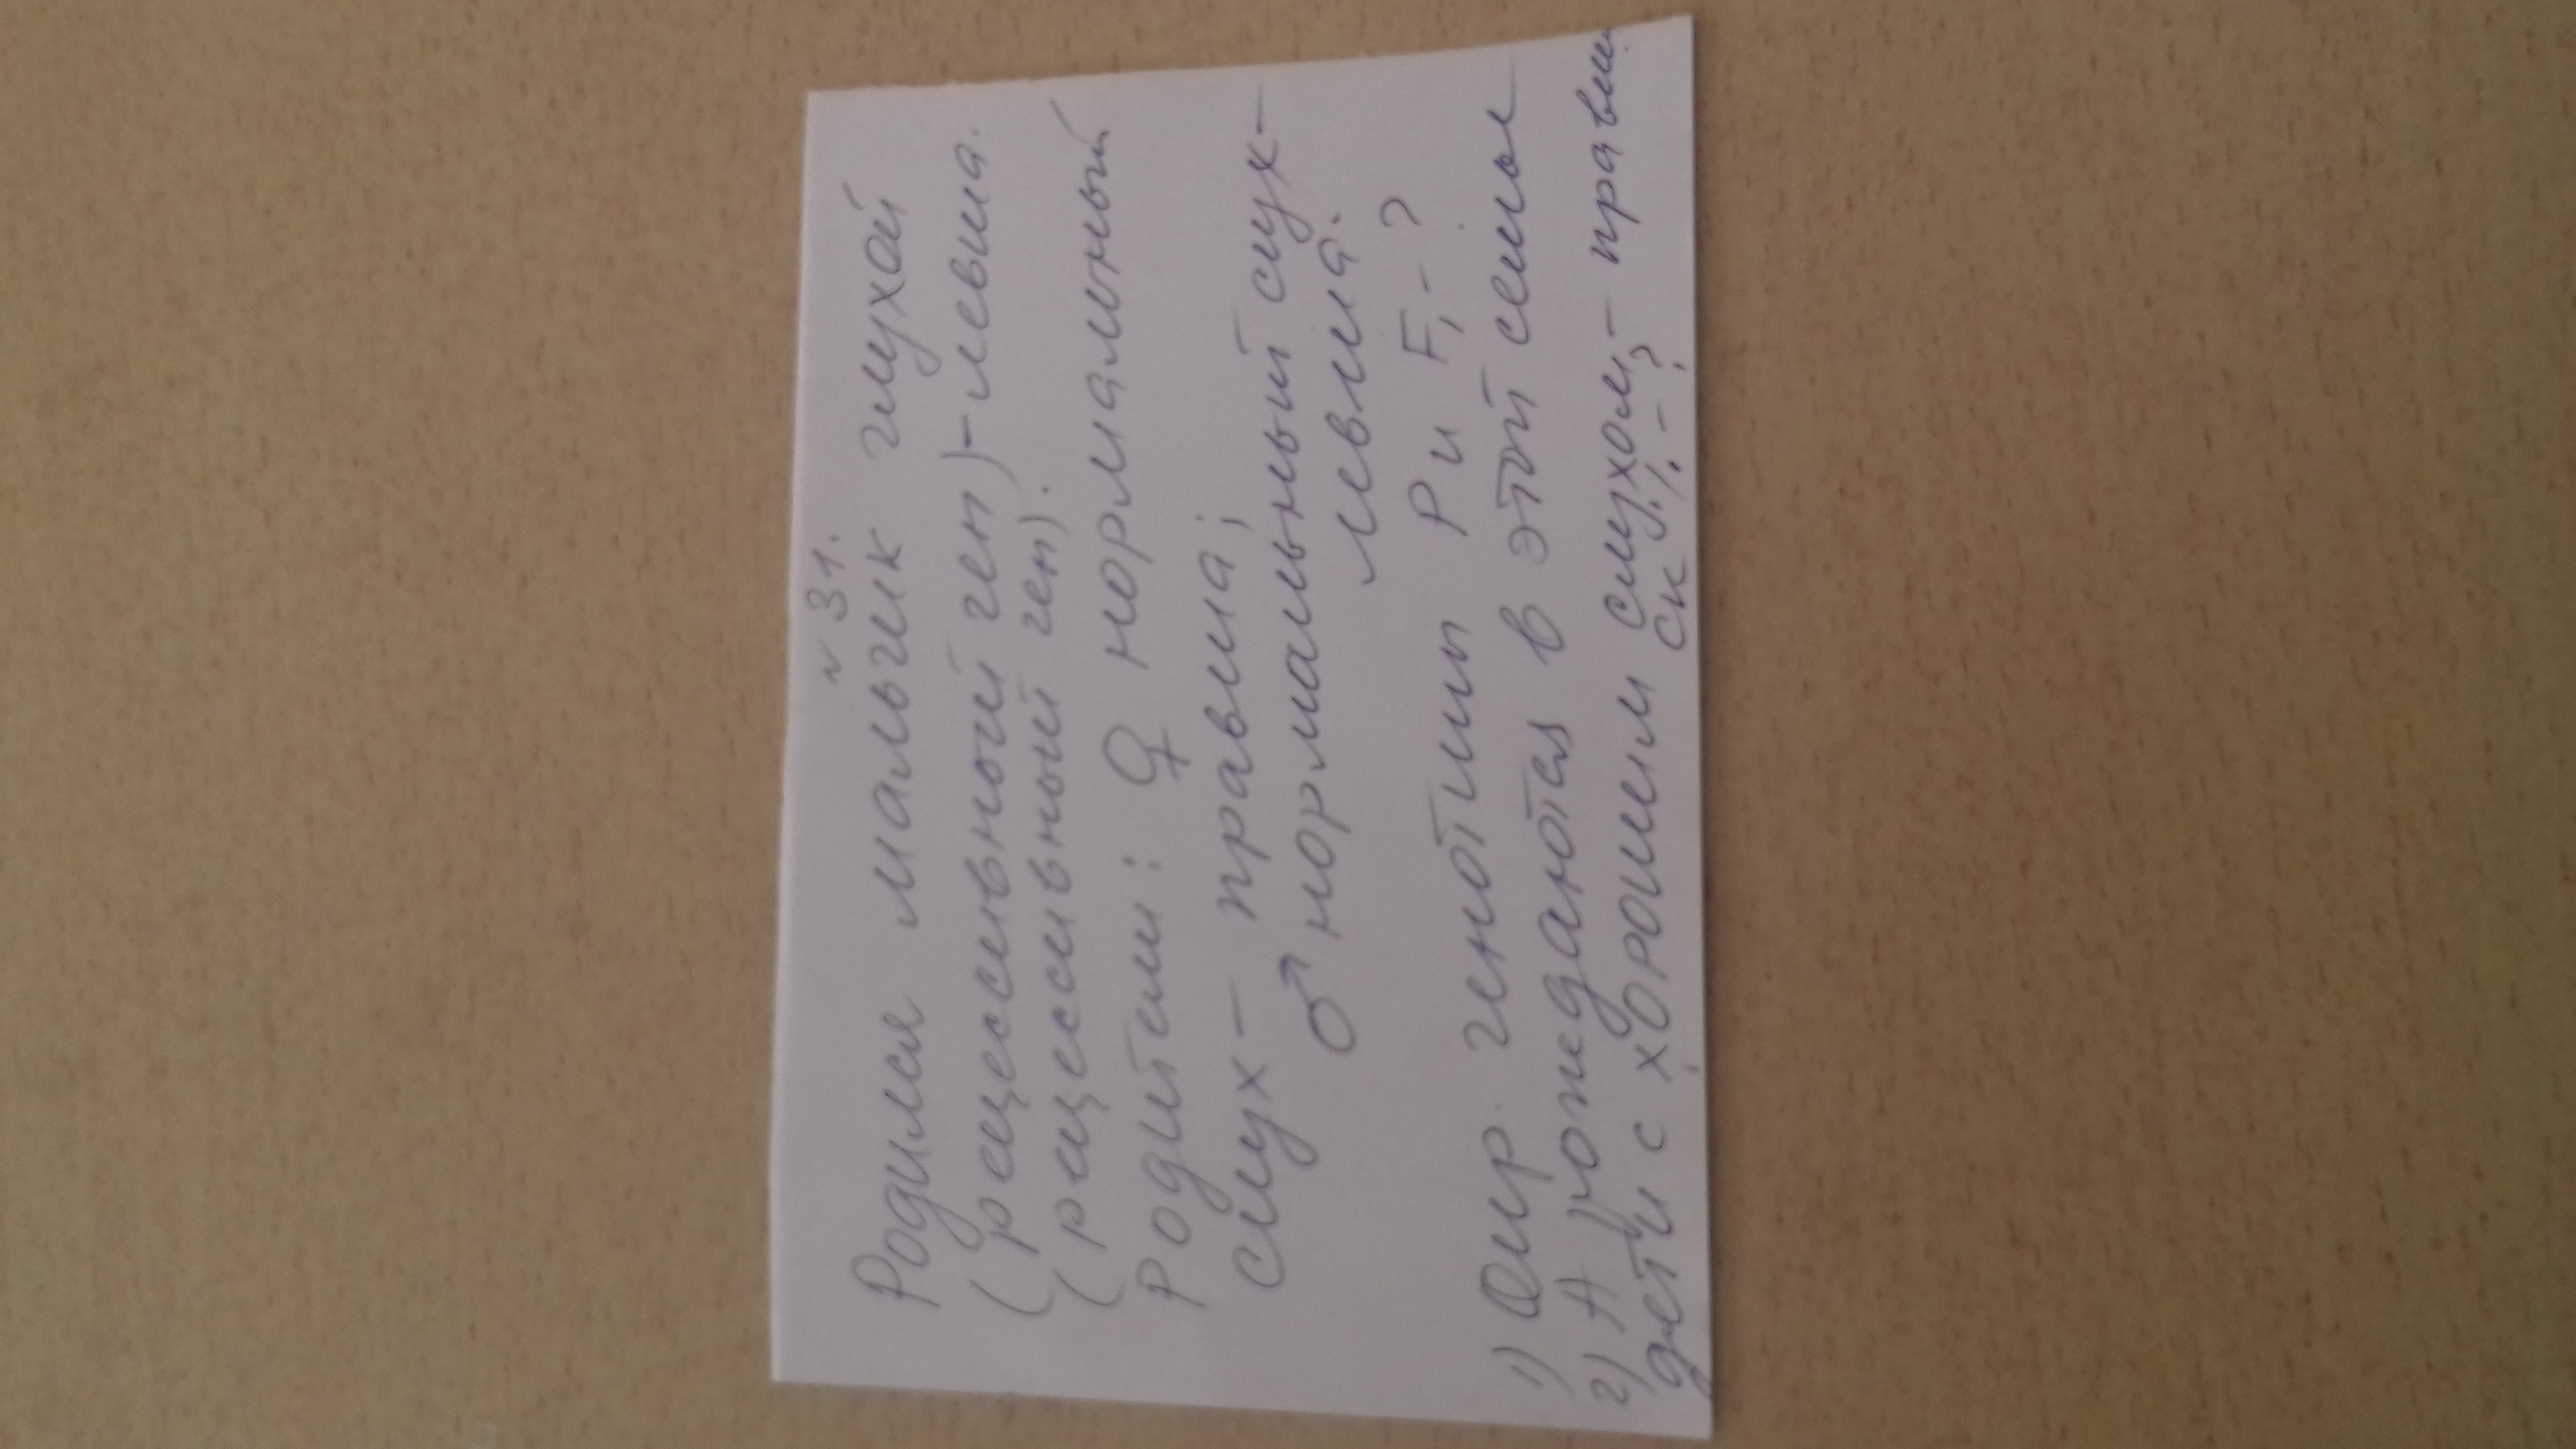 № 31.
Родился мальчик глухой
(рецессивной ген) - левша.
(рецессивный ген).
Родители: ♀ нормальный
слух - правша;
♂ нормальный слух -
левша.
1) Опр. генотипы Р и F₁ - ?
2) А рождаются в этой семье
дети с хорошим слухом, - правши
ск. % - ?